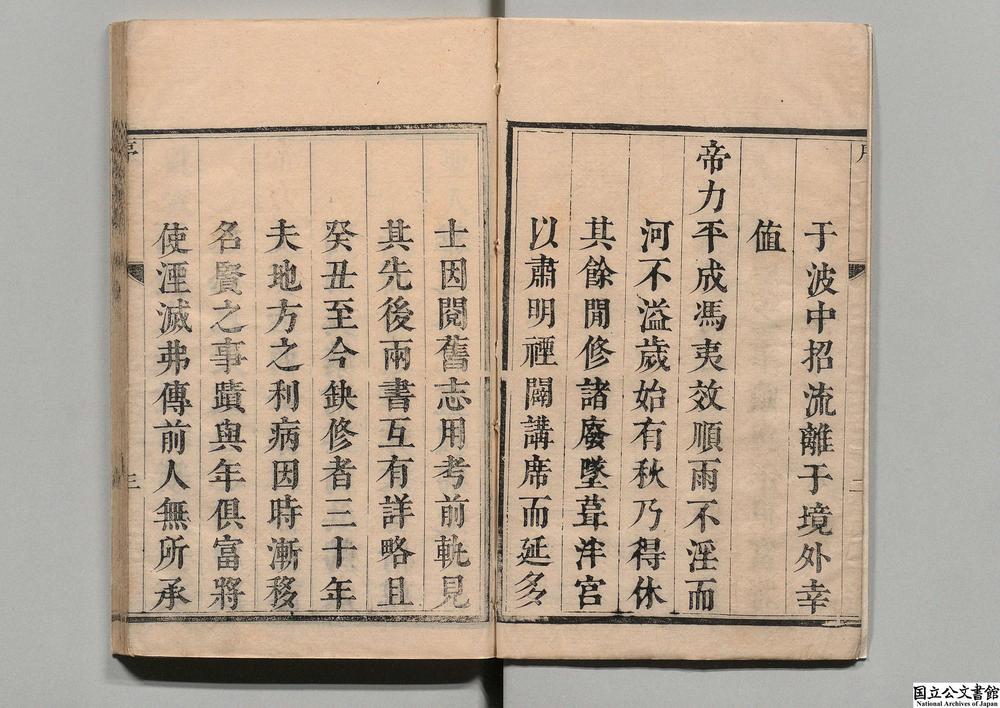 于波中招流離于境外幸
値
帝力平成馮夷效順雨不淫而
河不溢歲始有秋乃得休
其餘閒修諸廢墜葺泮宮
以肅明禋闢講席而延多
二
士因閱舊志用考前軌見
其先後兩書互有詳略且
癸丑至今缺修者三十年
夫地方之利病因時漸移
名賢之事蹟與年俱富將
使湮滅弗傳前人無所承
三
国立公文書館
National Archives of Japan